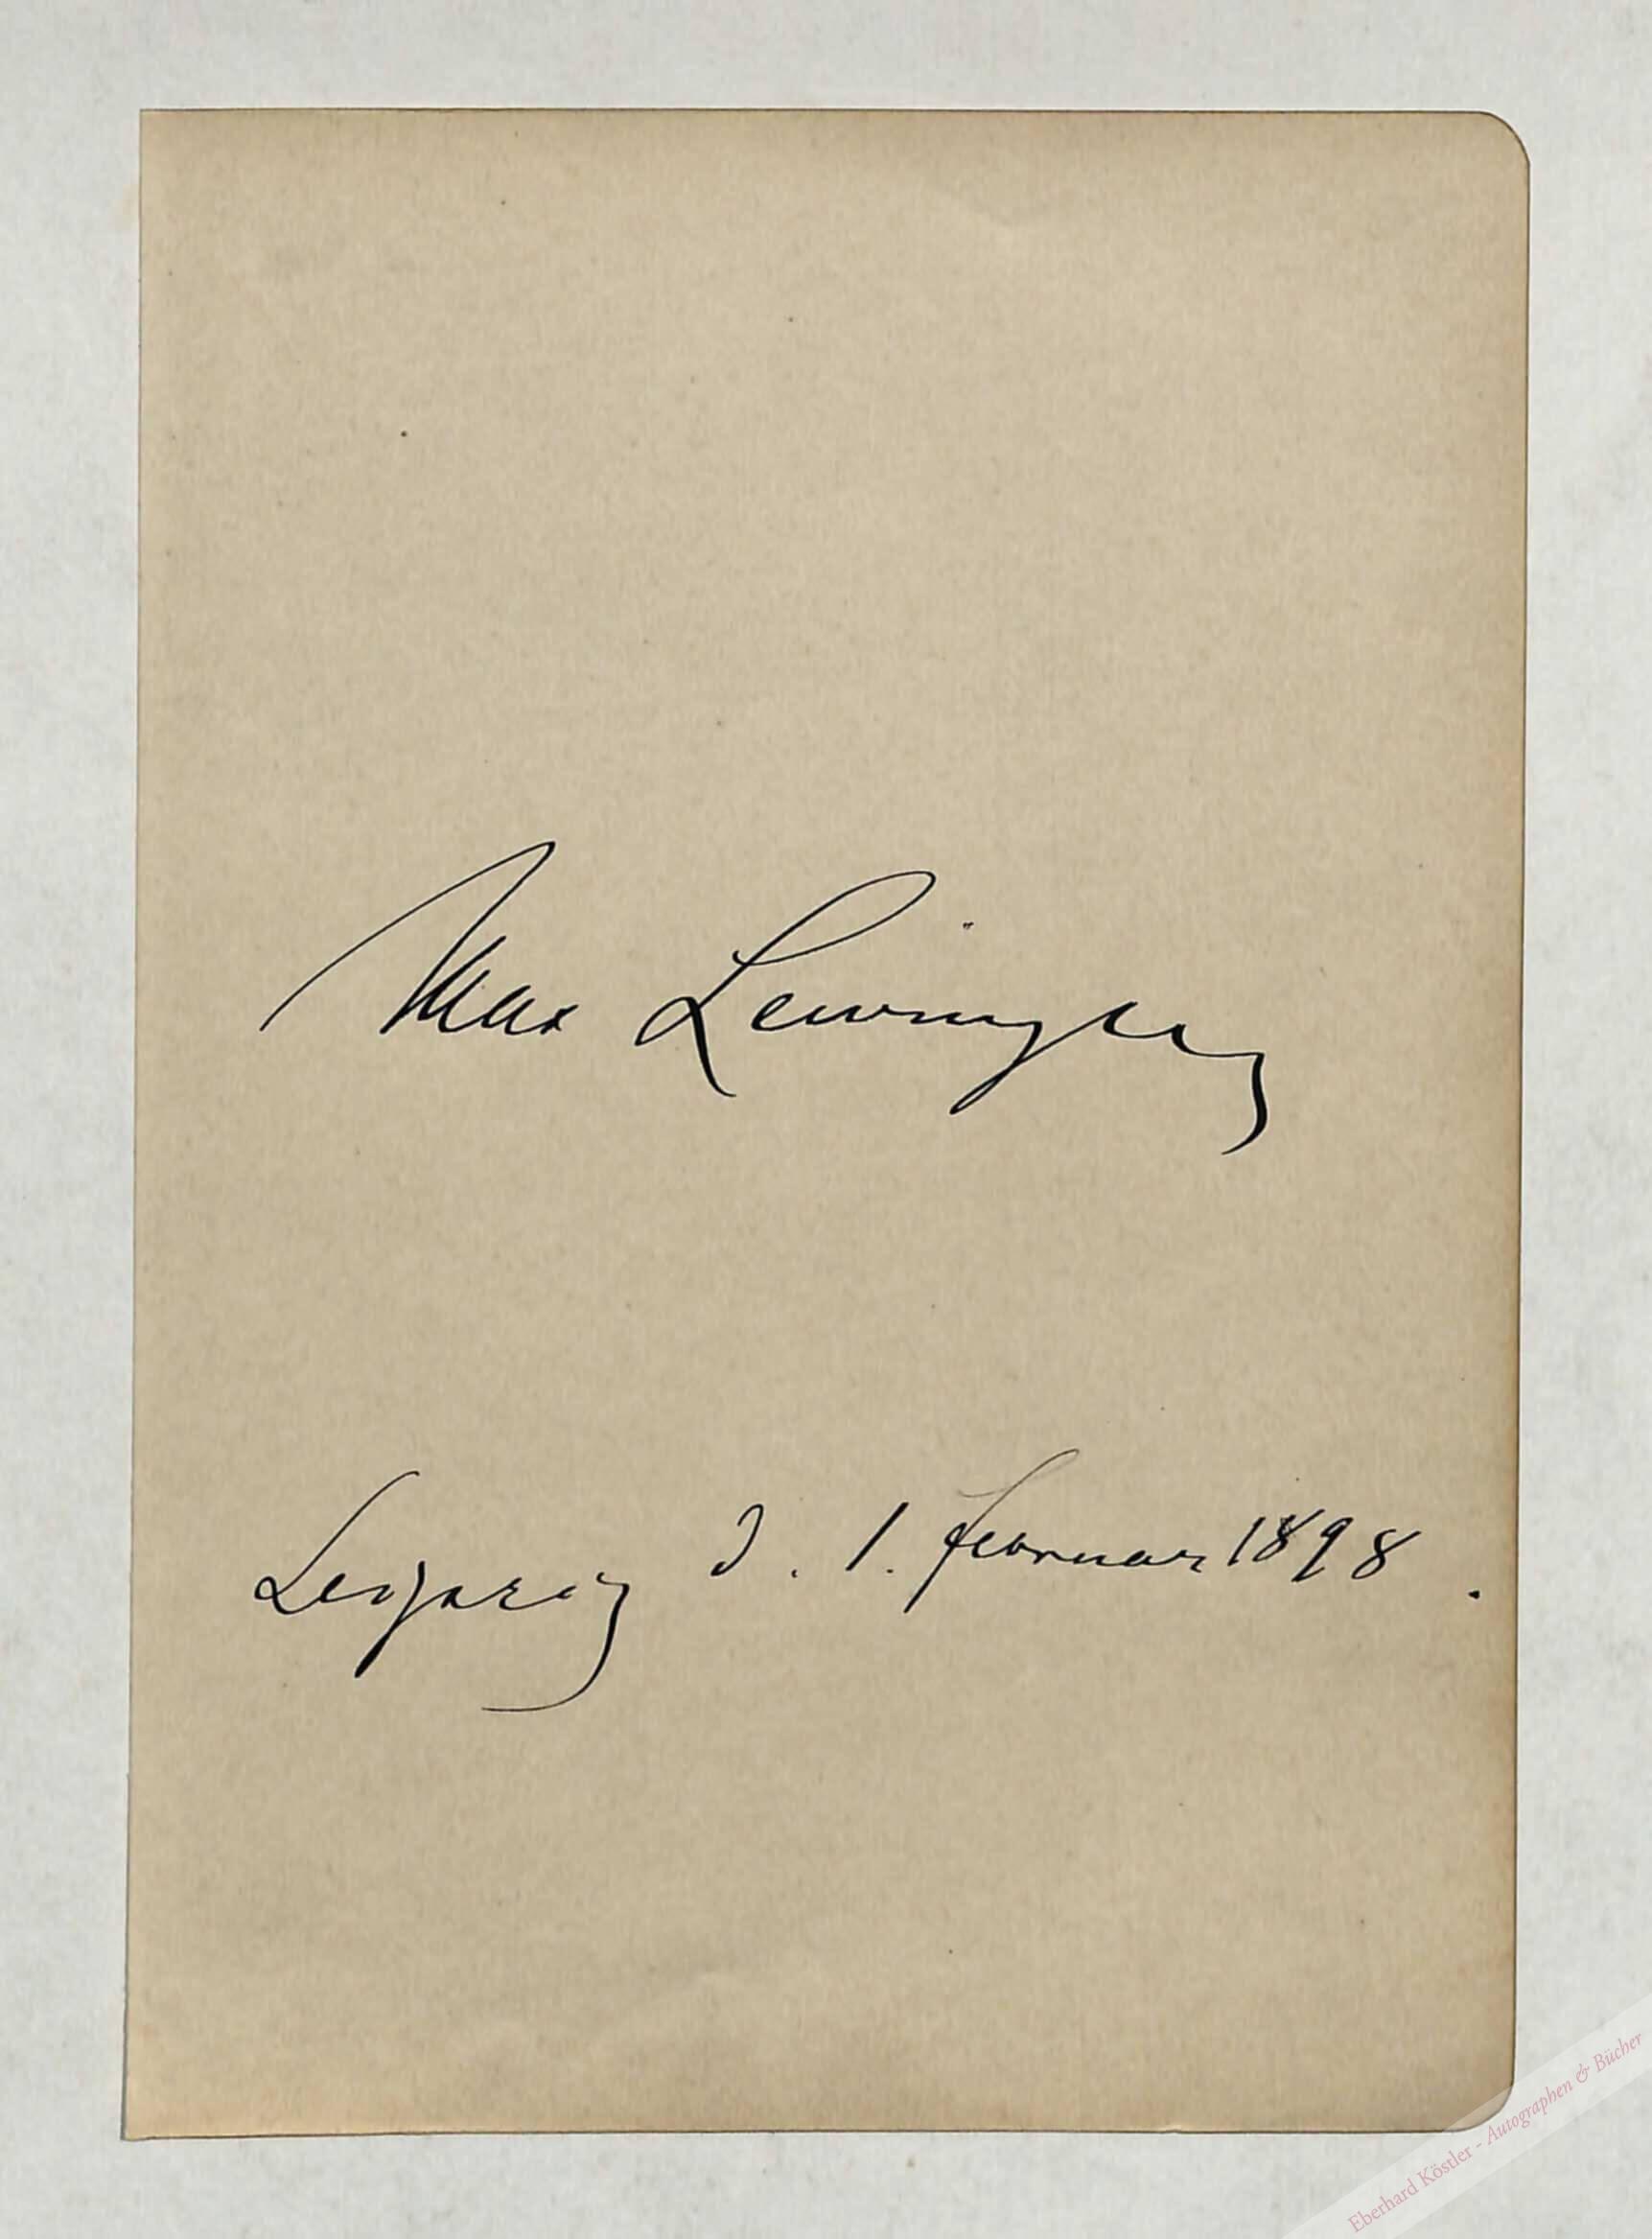 Max Lewinger
Leipzig d. 1. Februar 1898.
Eberhard Köstler - Autographen & Bücher